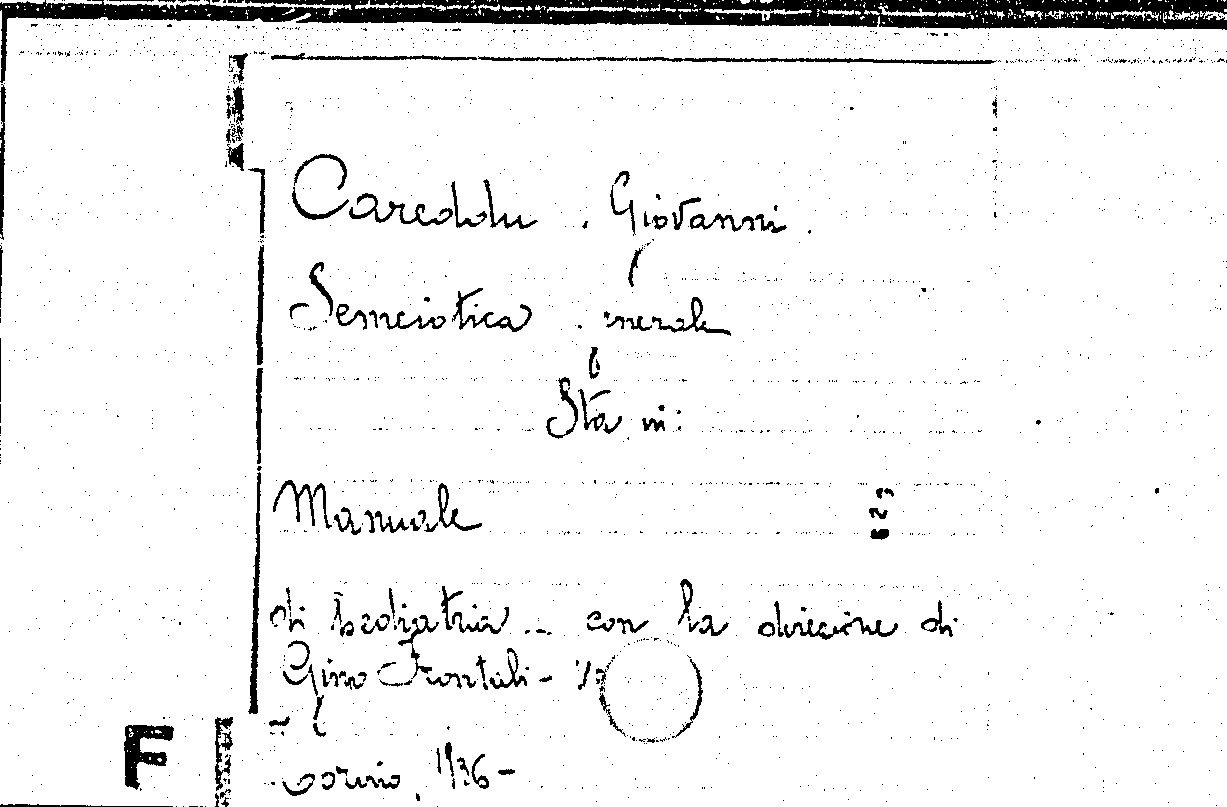 Careddu . Giovanni .
Semeiotica . generale
Sta in:
Manuale
623
di pediatria ... con la direzione di
Gino Frontali -
Torino, 1936 -
F